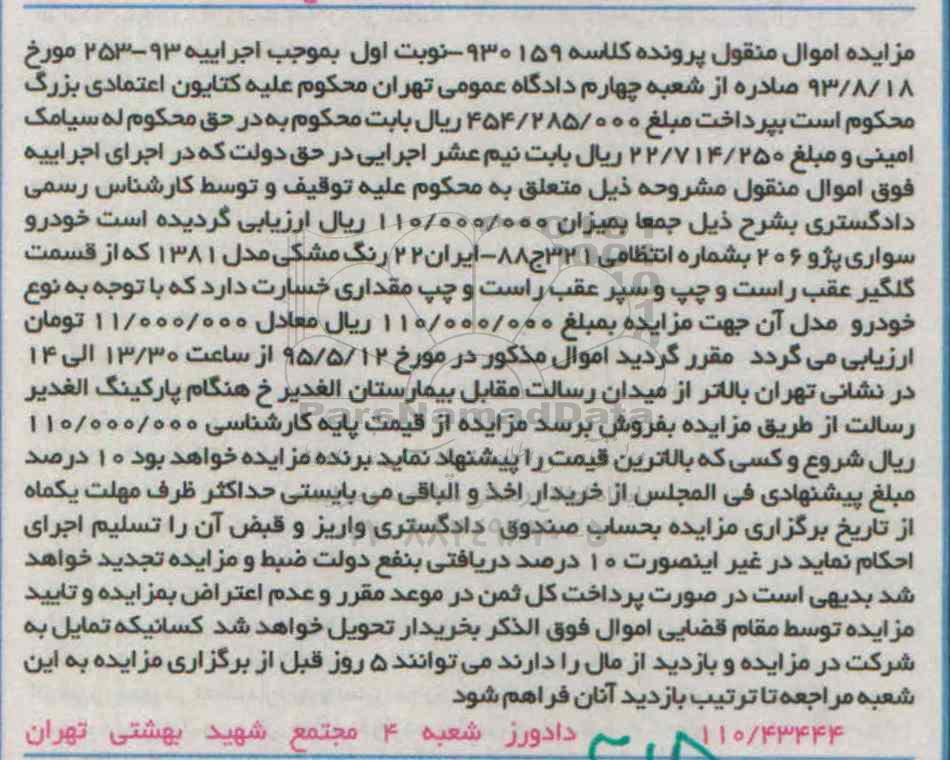 مزایده اموال منقول پرونده کلاسه ۹۳۰۱۵۹-نوبت اول بموجب اجراییه ۹۳-۲۵۳ مورخ
۹۳/۸/۱۸ صادره از شعبه چهارم دادگاه عمومی تهران محکوم علیه کتایون اعتمادی بزرگ
محکوم است بپرداخت مبلغ ۴۵۴/۲۸۵/۰۰۰ ریال بابت محکوم به در حق محکوم له سیامک
امینی و مبلغ ۲۲/۷۱۴/۲۵۰ ریال بابت نیم عشر اجرایی در حق دولت که در اجرای اجراییه
فوق اموال منقول مشروحه ذیل متعلق به محکوم علیه توقیف و توسط کارشناس رسمی
دادگستری بشرح ذیل جمعا بمیزان ۱۱۰/۰۰۰/۰۰۰ ریال ارزیابی گردیده است خودرو
سواری پژو ۲۰۶ بشماره انتظامی ۳۲۱ج۸۸-ایران۲۲ رنگ مشکی مدل ۱۳۸۱ که از قسمت
گلگیر عقب راست و چپ و سپر عقب راست و چپ مقداری خسارت دارد که با توجه به نوع
خودرو مدل آن جهت مزایده بمبلغ ۱۱۰/۰۰۰/۰۰۰ ریال معادل ۱۱/۰۰۰/۰۰۰ تومان
ارزیابی می گردد مقرر گردید اموال مذکور در مورخ ۹۵/۵/۱۲ از ساعت ۱۳/۳۰ الی ۱۴
در نشانی تهران بالاتر از میدان رسالت مقابل بیمارستان الغدیر خ هنگام پارکینگ الغدیر
رسالت از طریق مزایده بفروش برسد مزایده از قیمت پایه کارشناسی ۱۱۰/۰۰۰/۰۰۰
ریال شروع و کسی که بالاترین قیمت را پیشنهاد نماید برنده مزایده خواهد بود ۱۰ درصد
مبلغ پیشنهادی فی المجلس از خریدار اخذ و الباقی می بایستی حداکثر ظرف مهلت یکماه
از تاریخ برگزاری مزایده بحساب صندوق دادگستری واریز و قبض آن را تسلیم اجرای
احکام نماید در غیر اینصورت ۱۰ درصد دریافتی بنفع دولت ضبط و مزایده تجدید خواهد
شد بدیهی است در صورت پرداخت کل ثمن در موعد مقرر و عدم اعتراض بمزایده و تایید
مزایده توسط مقام قضایی اموال فوق الذکر بخریدار تحویل خواهد شد کسانیکه تمایل به
شرکت در مزایده و بازدید از مال را دارند می توانند ۵ روز قبل از برگزاری مزایده به این
شعبه مراجعه تا ترتیب بازدید آنان فراهم شود
۱۱۰/۴۳۴۴۴ دادورز شعبه ۴ مجتمع شهید بهشتی تهران
ParsNamadData